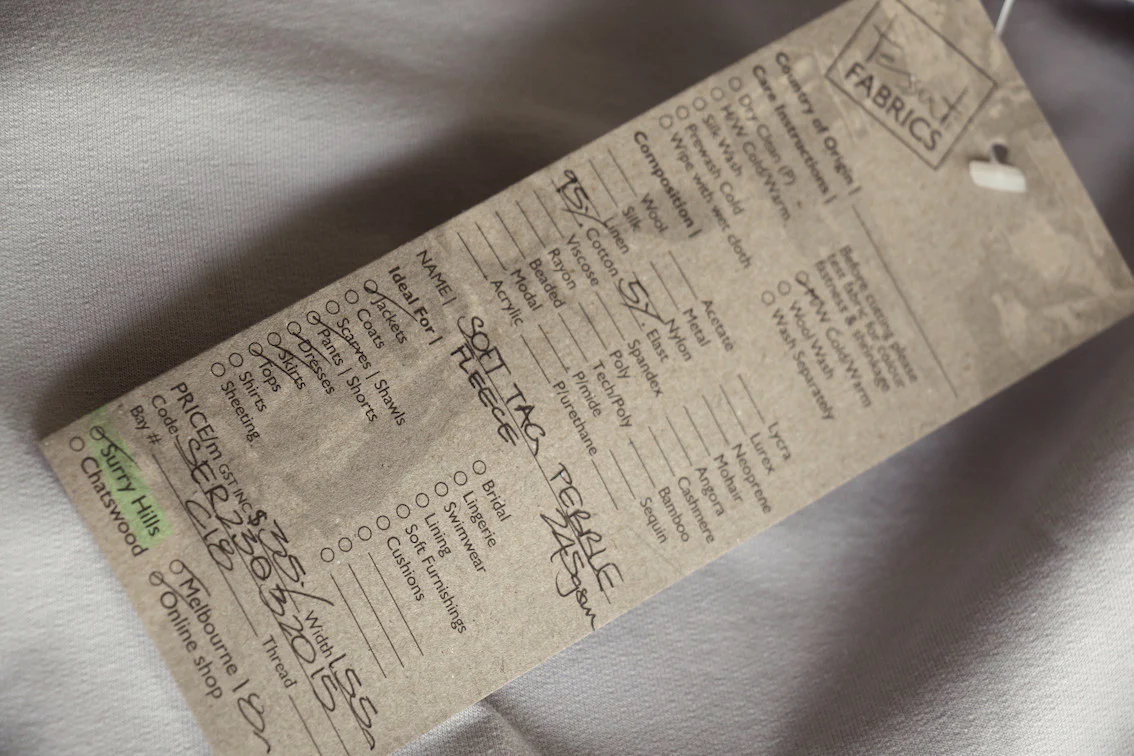 Tessuti
FABRICS
Country of Origin |
Care Instructions |
Dry Clean (P)
H/W Cold/Warm
Silk Wash
Prewash Cold
Wipe with wet cloth
Before cutting please
test fabric for colour
fastness & shrinkage
M/W Cold/Warm
Wool Wash
Wash Separately
Composition |
Wool
Silk
Linen
95% Cotton
Viscose
Rayon
Beaded
Modal
Acrylic
Acetate
Metal
Nylon
5% Elast
Spandex
Poly
Tech/Poly
P/mide
P/urethane
Lycra
Lurex
Neoprene
Mohair
Angora
Cashmere
Bamboo
Sequin
NAME | SOFT TAG PEBBLE
FLEECE 245gsm
Ideal For |
Jackets
Coats
Scarves | Shawls
Pants | Shorts
Dresses
Skirts
Tops
Shirts
Sheeting
Bridal
Lingerie
Swimwear
Lining
Soft Furnishings
Cushions
PRICE/m GST INC $35./ Width 155
Code SER230332015
Bay # C18 Thread
Surry Hills
Chatswood
Melbourne | 8
Online shop